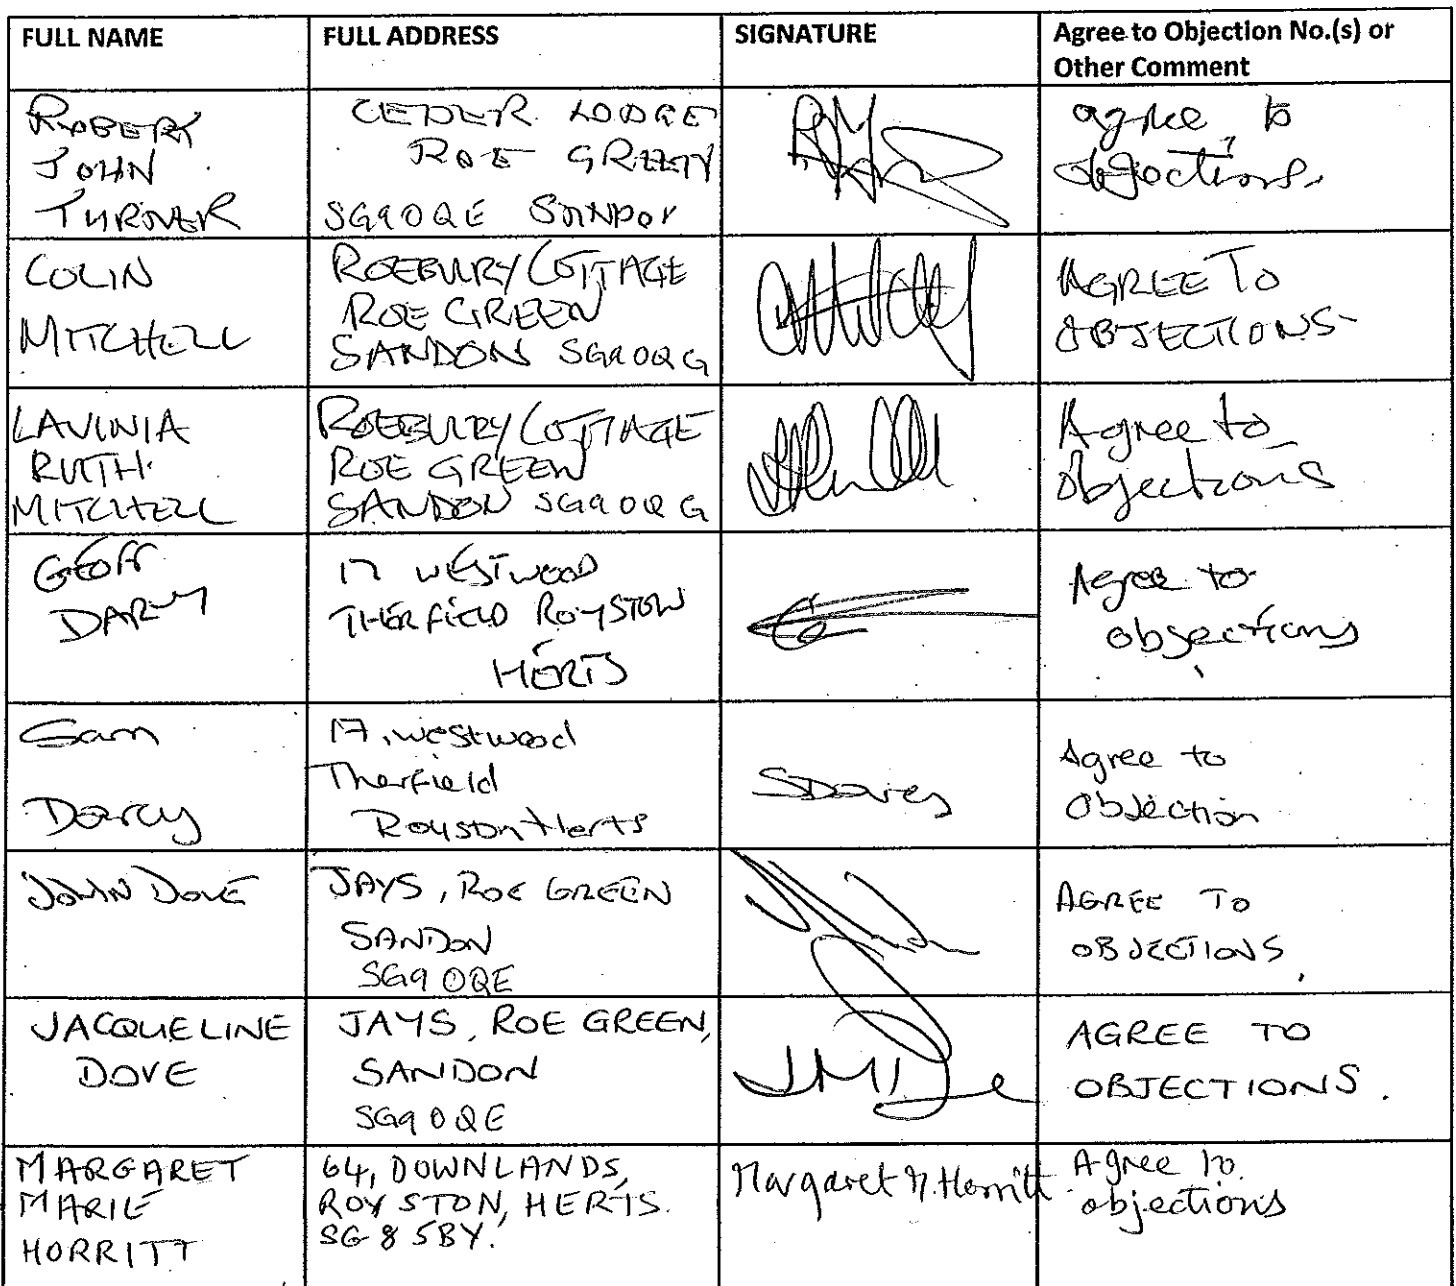 FULL NAME FULL ADDRESS SIGNATURE Agree to Objection No.(s) or
Other Comment
ROBERT
JOHN
TURNER
CEDER LODGE
ROE GREEN
SG9 0QE SANDON
agree to
objections.
COLIN
MITCHELL
ROEBURY COTTAGE
ROE GREEN
SANDON SG9 0QG
AGREE TO
OBJECTIONS
LAVINIA
RUTH
MITCHELL
ROEBURY COTTAGE
ROE GREEN
SANDON SG9 0QG
Agree to
Objections
GEOFF
DARCY
17 WESTWOOD
THERFIELD ROYSTON
HERTS
Agree to
objections
Sam
Darcy
17, Westwood
Therfield
Royson Herts
SDarcy
Agree to
Objection
JOHN DOVE
JAYS, ROE GREEN
SANDON
SG9 0QE
AGREE TO
OBJECTIONS.
JACQUELINE
DOVE
JAYS, ROE GREEN,
SANDON
SG9 0QE
AGREE TO
OBJECTIONS.
MARGARET
MARIE
HORRITT
64, DOWNLANDS,
ROYSTON, HERTS.
SG8 5BY.
Margaret M. Horritt
Agree to
objections